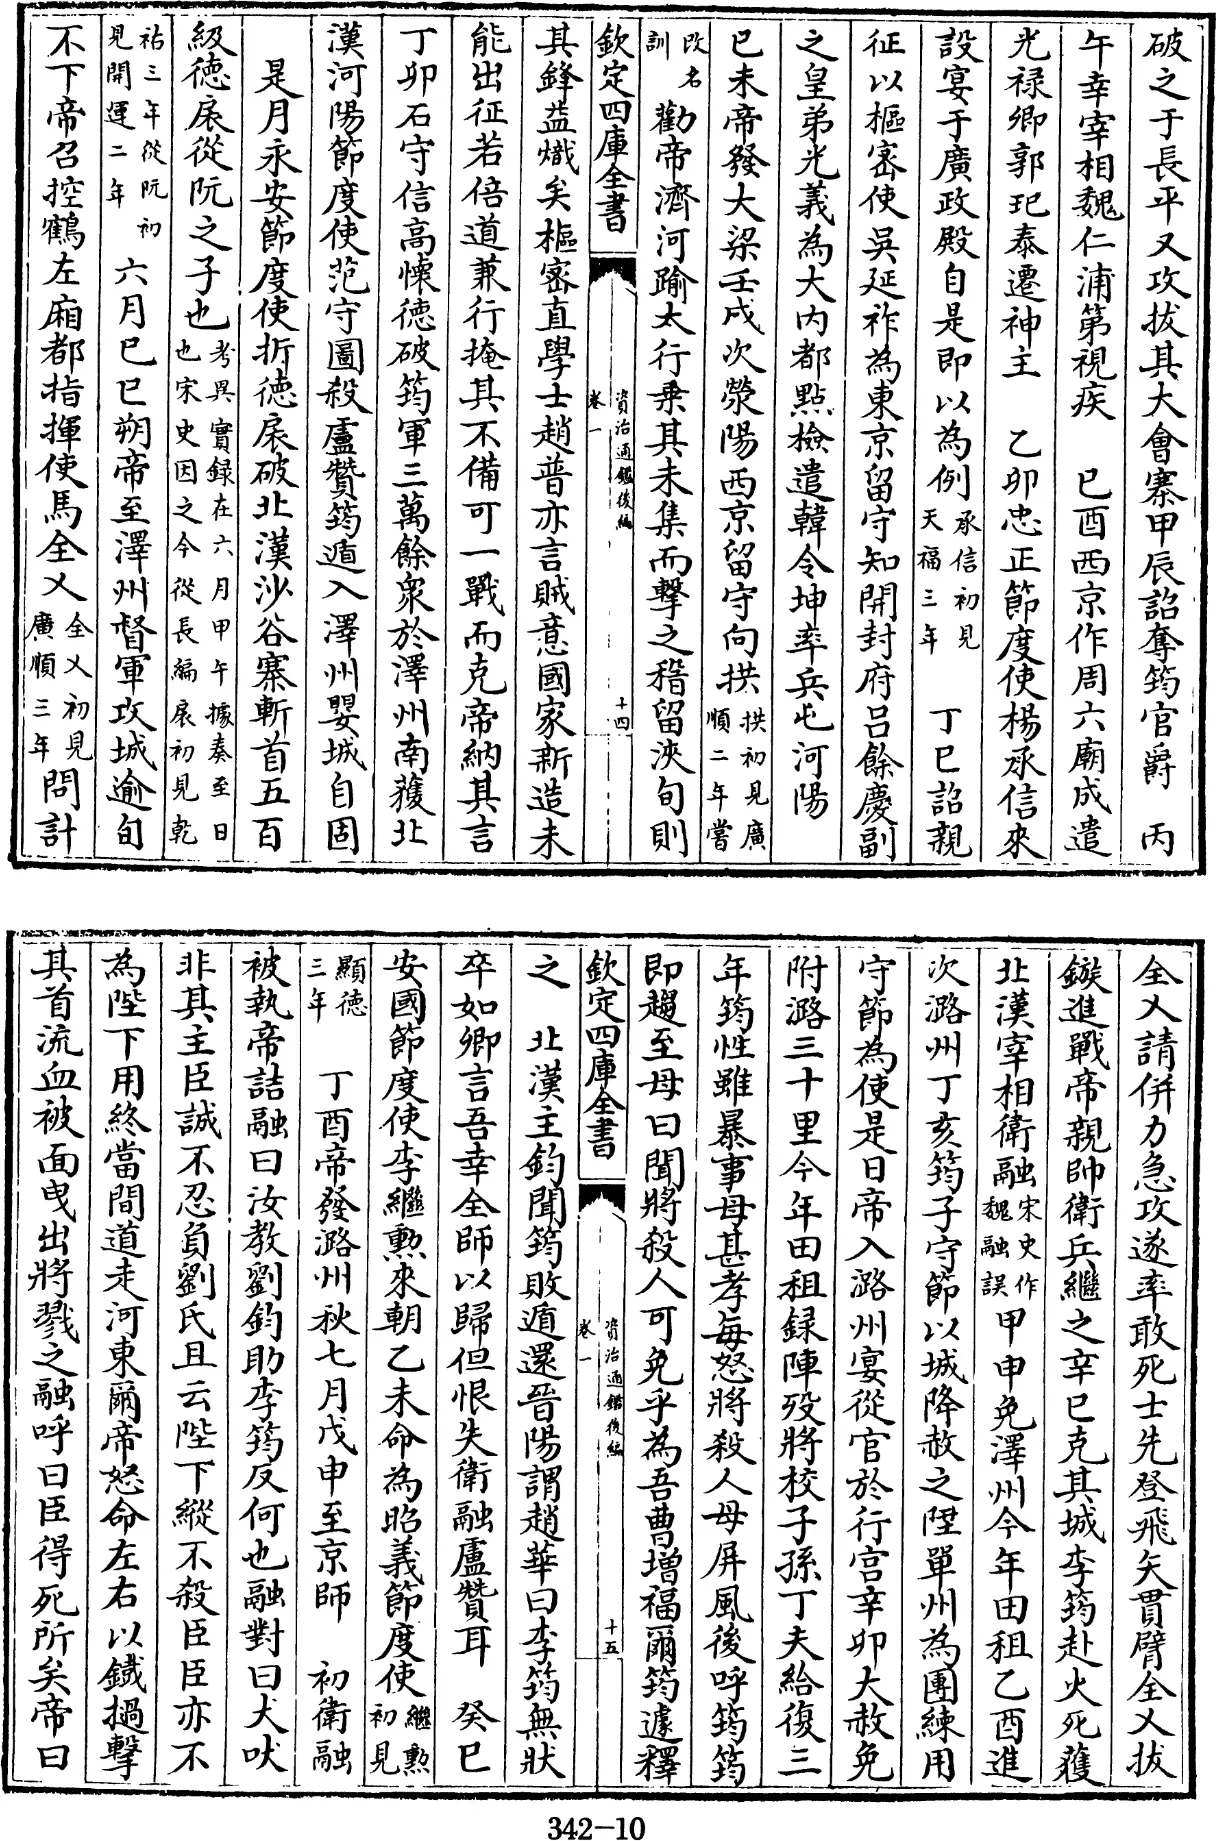 破之于長平又攻拔其大會寨甲辰詔奪筠官爵　丙
午幸宰相魏仁浦第視疾　己酉西京作周六廟成遣
光禄卿郭玘奉遷神主　乙卯忠正節度使楊承信來
設宴于廣政殿自是即以為例承信初見天福三年　丁巳詔親
征以樞密使吳延祚為東京留守知開封府吕餘慶副
之皇弟光義為大内都㸃檢遣韓令坤率兵屯河陽
己未帝發大梁壬戌次滎陽西京留守向拱拱初見廣順二年嘗
改名訓勸帝濟河踰太行乗其未集而擊之稽留浹旬則
欽定四庫全書
資治通鑑後編
卷一
十四
其鋒益熾矣樞密直學士趙普亦言賊意國家新造未
能出征若倍道兼行掩其不備可一戰而克帝納其言
丁卯石守信高懷德破筠軍三萬餘衆於澤州南獲北
漢河陽節度使范守圖殺盧贊筠遁入澤州嬰城自固
是月永安節度使折德扆破北漢沙谷寨斬首五百
級德扆從阮之子也考異實録在六月甲午據奏至日也宋史因之今從長編扆初見乾
祐三年從阮初見開運二年　六月己巳朔帝至澤州督軍攻城逾旬
不下帝召控鶴左廂都指揮使馬全乂全乂初見廣順三年問計
全乂請併力急攻遂率敢死士先登飛矢貫臂全乂拔
鏃進戰帝親帥衛兵繼之辛巳克其城李筠赴火死獲
北漢宰相衛融宋史作魏融誤甲申免澤州今年田租乙酉進
次潞州丁亥筠子守節以城降赦之陞單州為團練用
守節為使是日帝入潞州宴從官於行宫辛卯大赦免
附潞三十里今年田租録陣歿將校子孫丁夫給復三
年筠性雖暴事母甚孝每怒將殺人母屏風後呼筠筠
即趨至母曰聞將殺人可免乎為吾曹增福爾筠遽釋
欽定四庫全書
資治通鑑後編
卷一
十五
之　北漢主鈞聞筠敗遁還晉陽謂趙華曰李筠無狀
卒如卿言吾幸全師以歸但恨失衛融盧贊耳　癸巳
安國節度使李繼勲來朝乙未命為昭義節度使繼勲初見
顯德三年　丁酉帝發潞州秋七月戊申至京師　初衛融
被執帝詰融曰汝教劉鈞助李筠反何也融對曰犬吠
非其主臣誠不忍負劉氏且云陛下縱不殺臣臣亦不
為陛下用終當間道走河東爾帝怒命左右以鐵撾擊
其首流血被面曳出將戮之融呼曰臣得死所矣帝曰
342-10